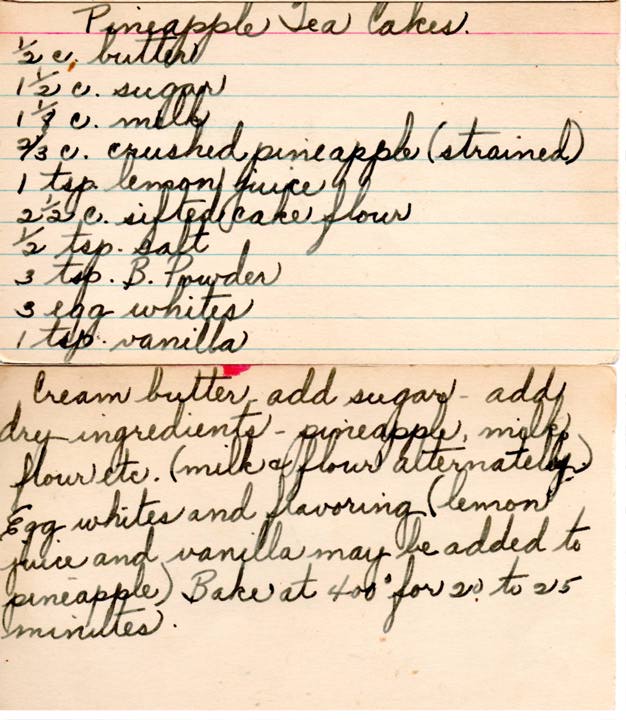 Pineapple Tea Cakes.
½ c. butter
1½ c. sugar
c. milk
⅔ c. crushed pineapple (strained)
1 tsp. lemon juice
2½ c. sifted cake flour
½ tsp. salt
3 tsp. B. Powder
3 egg whites
1 tsp. vanilla
Cream butter, add sugar - add
dry ingredients - pineapple, milk,
flour etc. (milk & flour alternately.)
Egg whites and flavoring (lemon
juice and vanilla may be added to
pineapple) Bake at 400° for 20 to 25
minutes.